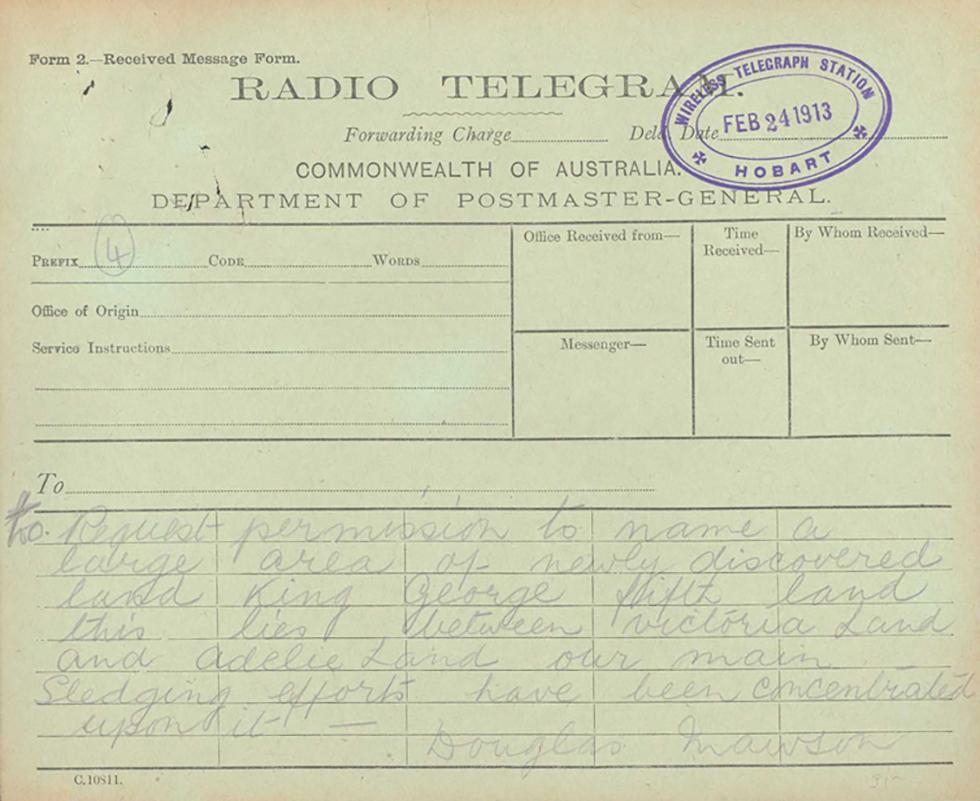 Form 2.—Received Message Form.
RADIO TELEGRAM.
WIRELESS TELEGRAPH STATION
FEB 24 1913
HOBART
Forwarding Charge Deld. Date
COMMONWEALTH OF AUSTRALIA.
DEPARTMENT OF POSTMASTER-GENERAL.
PREFIX 4 CODE WORDS
Office Received from—
Time Received—
By Whom Received—
Office of Origin
Service Instructions
Messenger—
Time Sent out—
By Whom Sent—
To
to. Request permission to name a
large area of newly discovered
land King George fifth land
this lies between victoria Land
and adelie Land our main
Sledging efforts have been concentrated
upon it —
Douglas Mawson
C.10811.